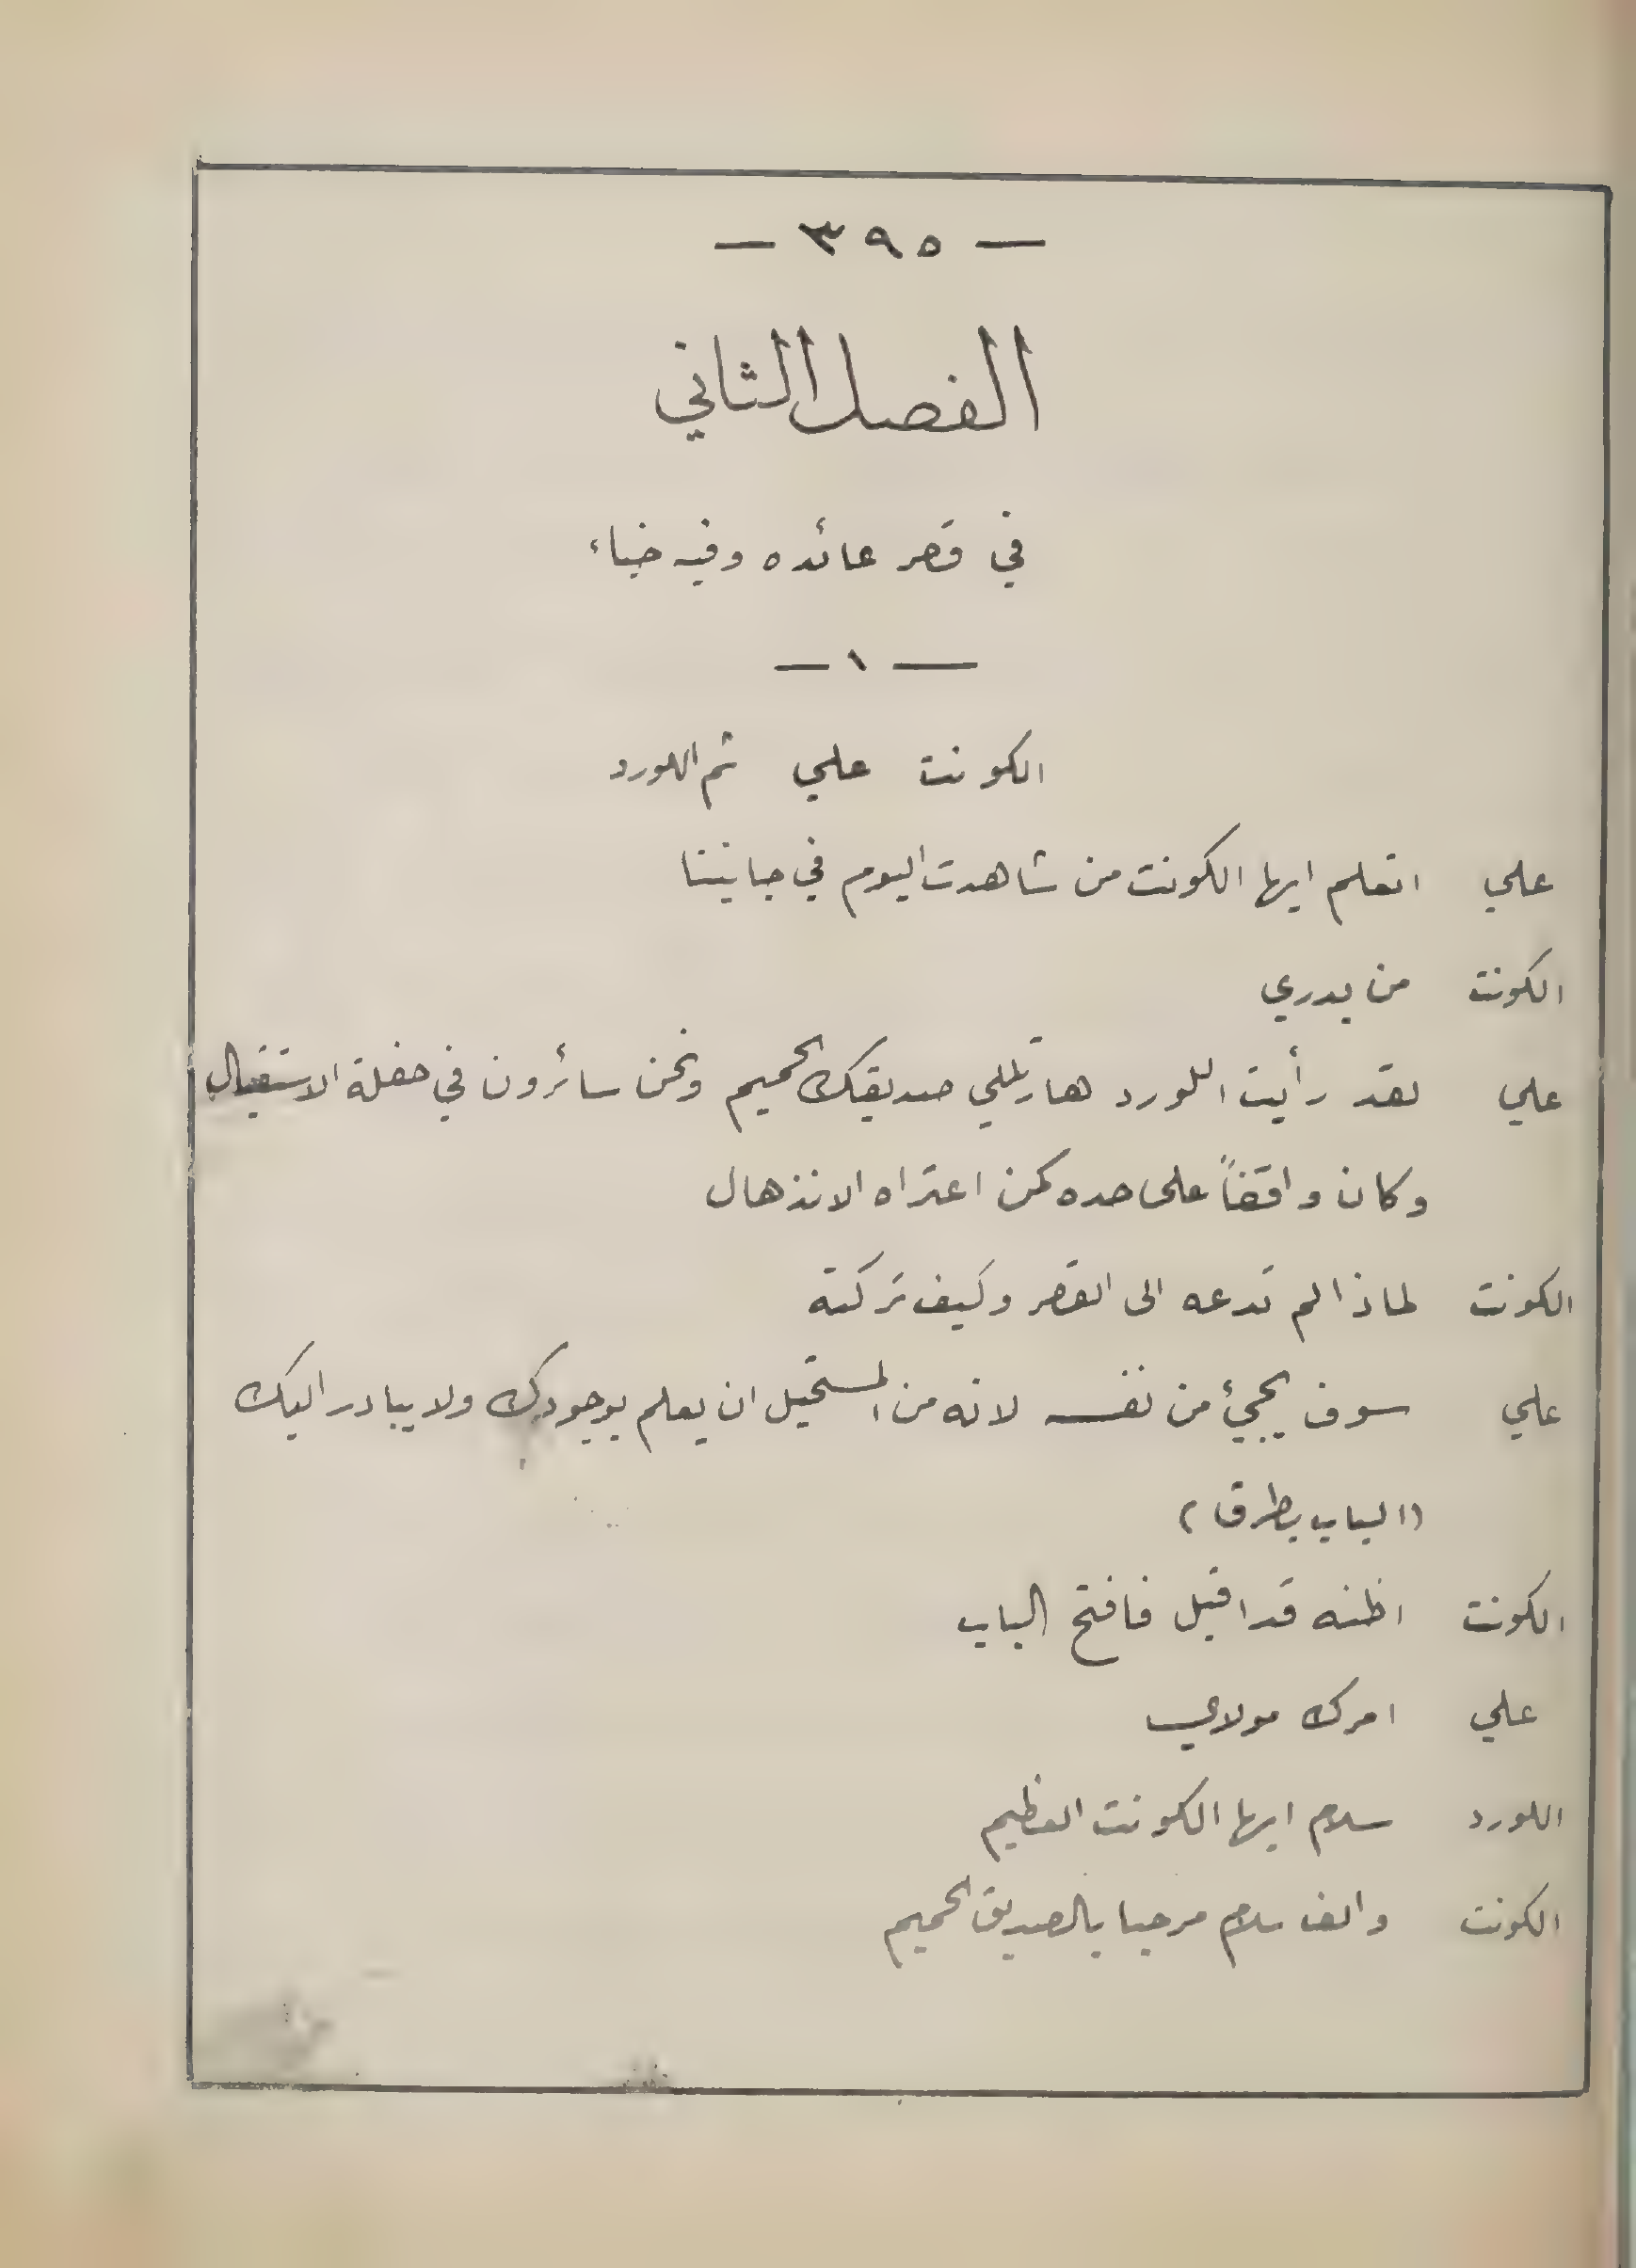 — ٣٩٥ —
الفصل الثاني
في قصر عائده وفيه خباء
— ١ —
الكونت علي ثم اللورد
علي اتعلم ايها الكونت من شاهدت اليوم في جانينا
الكونت من يدري
علي لقد رأيت اللورد هارتللي صديقك الحميم ونحن سائرون في حفلة الاستقبال
وكان واقفاً على حده كمن اعتراه الانذهال
الكونت لماذا لم تدعه الى القصر وكيف تركته
علي سوف يجيئ من نفسه لانه من المستحيل ان يعلم بوجودك ولا يبادر اليك
(الباب يطرق)
الكونت اظنه قد اقبل فافتح الباب
علي امرك مولاي
اللورد سلام ايها الكونت العظيم
الكونت والف سلام مرحبا بالصديق الحميم